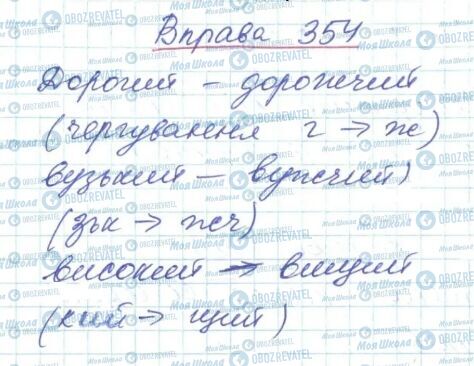 Вправа 354
Дорогий – дорожчий
(чергування г → ж)
вузький – вужчий)
(зьк → жч)
високий → вищий
(кий → щий)